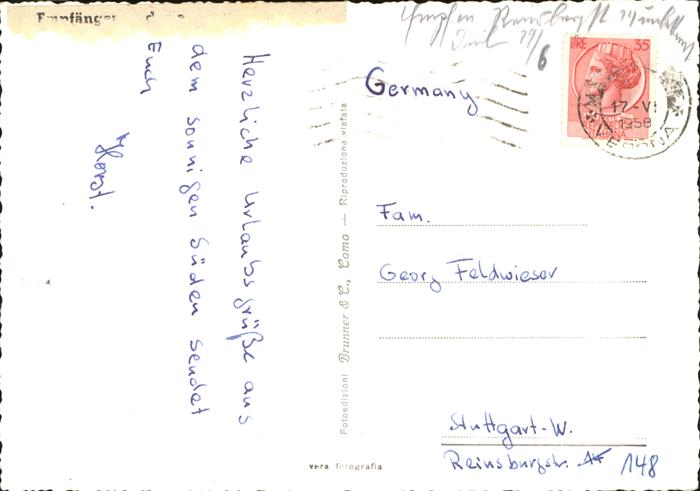 Herzliche Urlaubsgrüße aus
dem sonnigen Süden sendet
Euch
Horst.
Germany
LIRE 35
17-VI
1958
Fam.
Georg Feldwieser
Stuttgart-W.
Reinsburgstr. 148
Fotoedizioni Brunner & C., Como — Riproduzione vietata
vera fotografia